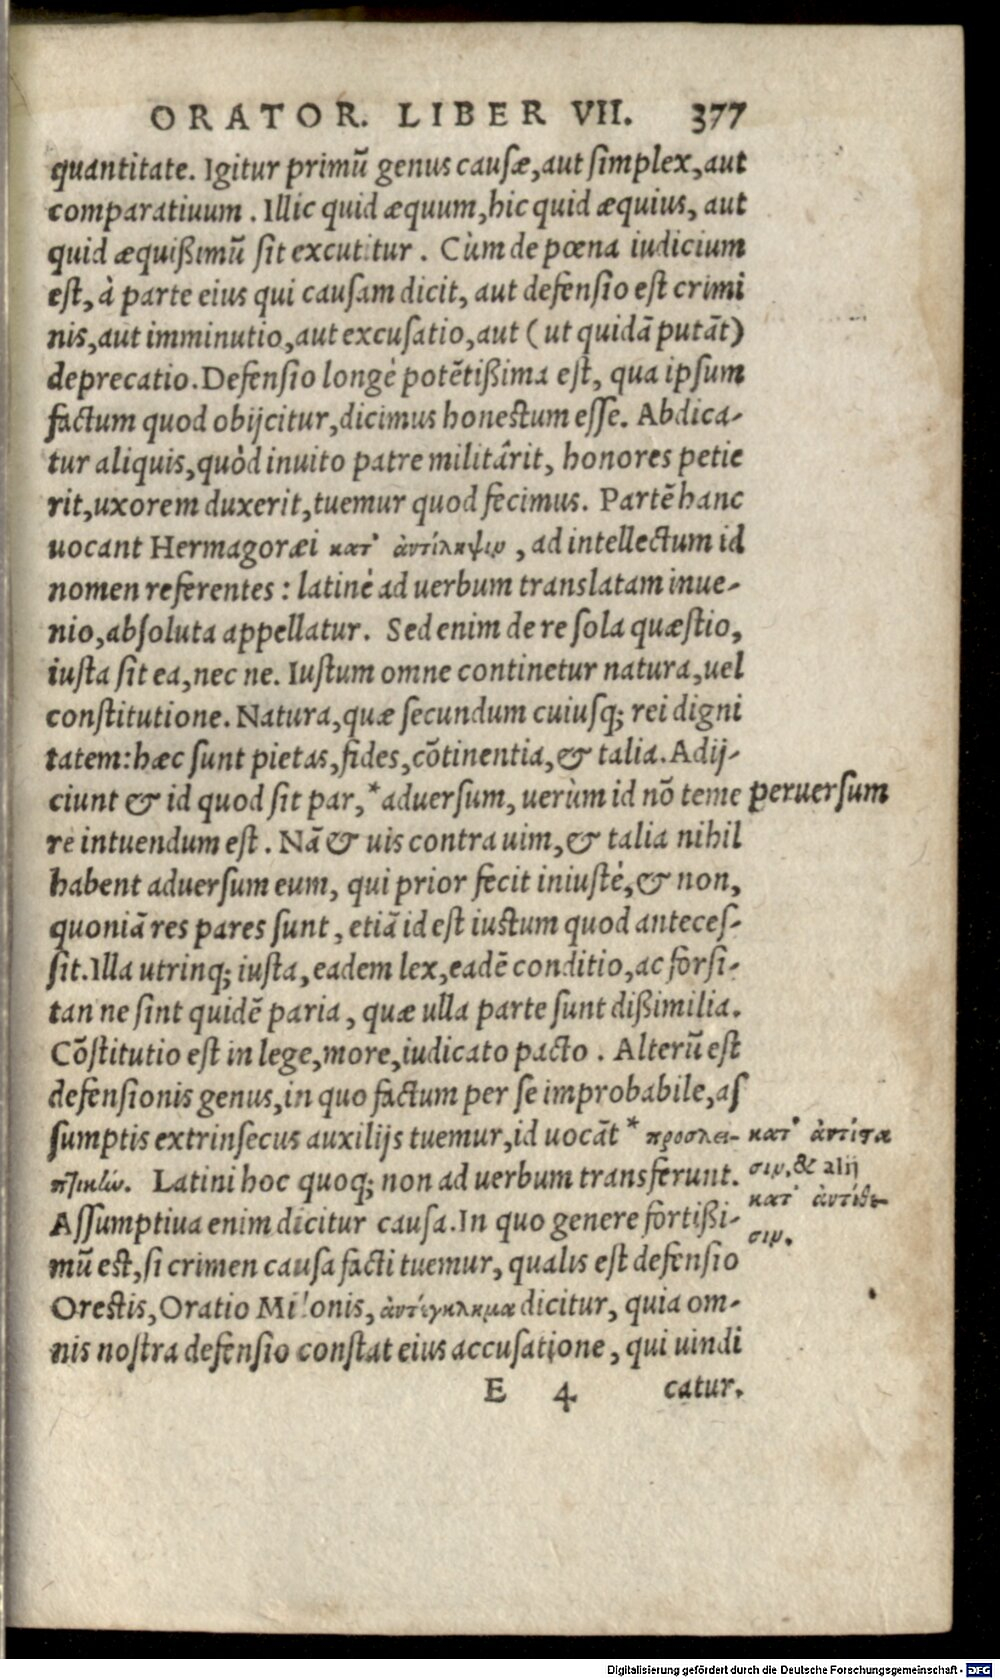 ORATOR. LIBER VII. 377
quantitate. Igitur primũ genus causæ, aut simplex, aut
comparatiuum. Illic quid æquum, hic quid æquius, aut
quid æquißimũ sit excutitur. Cùm de pœna iudicium
est, à parte eius qui causam dicit, aut defensio est crimi
nis, aut imminutio, aut excusatio, aut (ut quidã putãt)
deprecatio. Defensio longè potẽtißima est, qua ipsum
factum quod obijcitur, dicimus honestum esse. Abdica-
tur aliquis, quòd inuito patre militârit, honores petie
rit, uxorem duxerit, tuemur quod fecimus. Partẽ hanc
uocant Hermagoræi κατ' ἀντίληψιν, ad intellectum id
nomen referentes: latinè ad uerbum translatam inue-
nio, absoluta appellatur. Sed enim de re sola quæstio,
iusta sit ea, nec ne. Iustum omne continetur natura, uel
constitutione. Natura, quæ secundum cuiusq; rei digni
tatem: hæc sunt pietas, fides, cõtinentia, & talia. Adij-
ciunt & id quod sit par, *aduersum, uerùm id nõ teme
peruersum
re intuendum est. Nã & uis contra uim, & talia nihil
habent aduersum eum, qui prior fecit iniustè, & non,
quoniã res pares sunt, etiã id est iustum quod anteces-
sit. Illa utrinq; iusta, eadem lex, eadẽ conditio, ac forsi-
tan ne sint quidẽ paria, quæ ulla parte sunt dißimilia.
Cõstitutio est in lege, more, iudicato pacto. Alterũ est
defensionis genus, in quo factum per se improbabile, as
sumptis extrinsecus auxilijs tuemur, id uocãt * προσλει-
κατ' ἀντίτα
σιν. & alij
κατ' ἀντίθε-
σιν.
πτικὼν. Latini hoc quoq; non ad uerbum transferunt.
Assumptiua enim dicitur causa. In quo genere fortißi-
mũ est, si crimen causa facti tuemur, qualis est defensio
Orestis, Oratio Milonis, ἀντέγκλημα dicitur, quia om-
nis nostra defensio constat eius accusatione, qui uindi
E 4 catur.
Digitalisierung gefördert durch die Deutsche Forschungsgemeinschaft - DFG